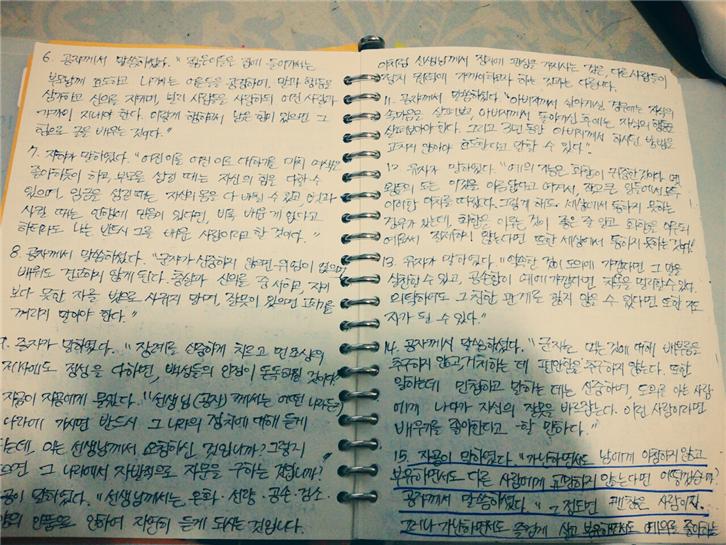 6. 공자께서 말씀하셨다. "젊은이들은 집에 들어가서는
부모님께 효도하고 나가서는 어른들을 공경하며, 말과 행동을
삼가고 신의를 지키며, 널리 사람들을 사랑하되 어진 사람과
가까이 지내야 한다. 이렇게 행하고서 남은 힘이 있으면 그
힘으로 글을 배우는 것이다."
7. 자하가 말하였다. "어진 이를
좋아하듯이 하고, 부모를 섬길 때는 자신의 힘을 다할 수
있으며, 임금을 섬길 때는 자신의 몸을 다 바칠 수 있고, 벗과
사귈 때는 언행에 믿음이 있다면, 비록 배운 게 없다고
하더라도 나는 반드시 그를 배운 사람이라고 할 것이다."
8. 공자께서 말씀하셨다. "군자가 신중하지 않으면 위엄이 없으며,
배워도 견고하지 않게 된다. 충성과 신의를 중시하고, 자기
보다 못한 자를 벗으로 사귀지 말며, 잘못이 있으면 고치기를
꺼리지 말아야 한다."
9. 증자가 말하였다. "장례를 신중하게 치르고 먼 조상의
제사에도 정성을 다하면, 백성들의 인정이 돈독해질 것이다."
자금이 자공에게 물었다. "선생님(공자)께서는 어떤 나라에
가시면 반드시 그 나라의 정치에 대해 듣게
되는데, 이는 선생님께서 요청하신 것입니까? 그렇지
않으면 그 나라에서 자발적으로 자문을 구하는 것입니까?"
자공이 말하였다. "선생님께서는 온화·선량·공손·검소·
인하여 자연히 듣게 되시는 것입니다.
선생님께서 정치에 관심을 가지시는 것은, 다른 사람들이
하는 것과는 다릅니다.
11. 공자께서 말씀하셨다. "아버지께서 살아계실 경우에는 자식의
속마음을 살펴보고, 아버지께서 돌아가신 후에는 자식의 행동을
살펴보아야 한다. 그리고 3년 동안 아버지께서 하시던 방법을
고치지 않아야 효도한다고 말할 수 있다."
12. 유자가 말하였다. "예의 작용은 화합이 귀중한 것이다. 옛
왕들의 도는 이것을 아름답다고 여겨서, 작고 큰 일들에서 모두
이러한 이치를 따랐다. 그렇게 해도 세상에서 통하지 못하는
경우가 있는데, 화합을 이루는 것이 좋은 줄 알고 화합을 이루되
예로써 절제하지 않는다면 또한 세상에서 통하지 못하는 것이다."
13. 유자가 말하였다. "약속한 것이 도의에 가깝다면 그 말을
실천할 수 있고, 공손함이 예에 가깝다면 치욕을 멀리할 수 있다.
의탁하여도 그 친한 관계를 잃지 않을 수 있다면 또한
자가 될 수 있다."
14. 공자께서 말씀하셨다. "군자는 먹는 것에 대해 배부름을
추구하지 않고, 거처하는 데 편안함을 추구하지 않는다. 또한
일하는데 민첩하고 말하는 데는 신중하며, 도의를 아는 사람
에게 나아가 자신의 잘못을 바로잡는다. 이런 사람이라면
배우기를 좋아한다고 할 만하다."
15. 자공이 말하였다. "가난하면서도 남에게 아첨하지 않고
부유하면서도 다른 사람에게 교만하지 않는다면 어떻습니까?"
공자께서 말씀하셨다. "그 정도면 괜찮은 사람이지.
그러나 가난하면서도 즐겁게 살고 부유하면서도 예의를 좋아하는